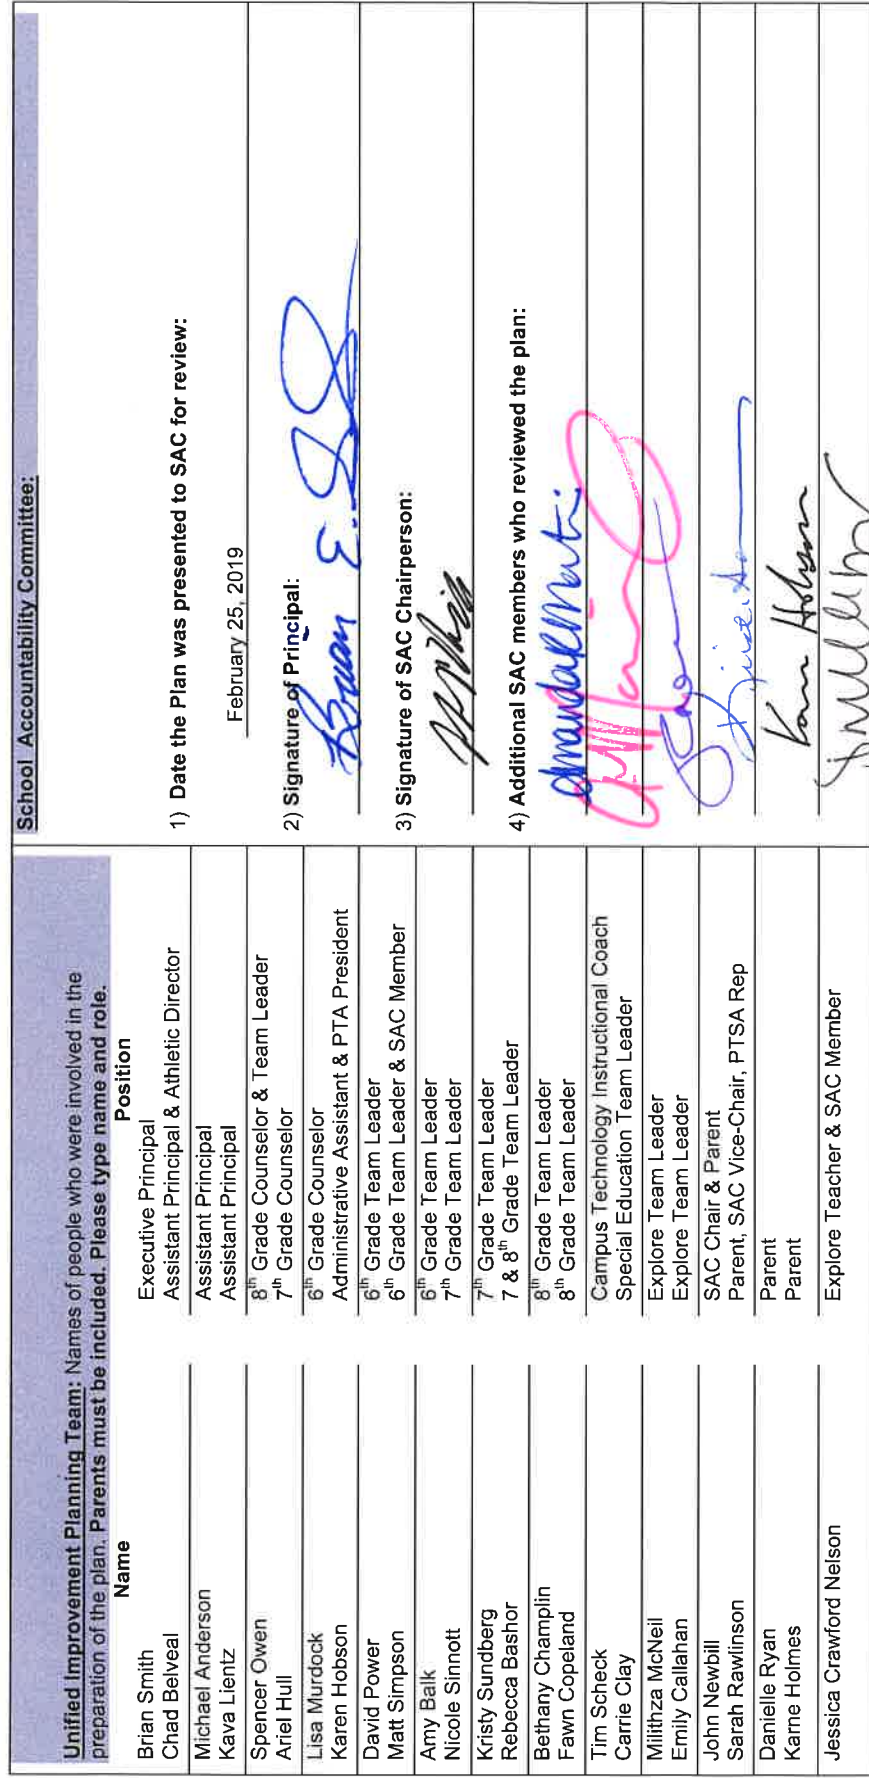 Unified Improvement Planning Team: Names of people who were involved in the
preparation of the plan. Parents must be included. Please type name and role.
Name Position
Brian Smith Executive Principal
Chad Belveal Assistant Principal & Athletic Director
Michael Anderson Assistant Principal
Kava Lientz Assistant Principal
Spencer Owen 8th Grade Counselor & Team Leader
Ariel Hull 7th Grade Counselor
Lisa Murdock 6th Grade Counselor
Karen Hobson Administrative Assistant & PTA President
David Power 6th Grade Team Leader
Matt Simpson 6th Grade Team Leader & SAC Member
Amy Balk 6th Grade Team Leader
Nicole Sinnott 7th Grade Team Leader
Kristy Sundberg 7th Grade Team Leader
Rebecca Bashor 7 & 8th Grade Team Leader
Bethany Champlin 8th Grade Team Leader
Fawn Copeland 8th Grade Team Leader
Tim Scheck Campus Technology Instructional Coach
Carrie Clay Special Education Team Leader
Milithza McNeil Explore Team Leader
Emily Callahan Explore Team Leader
John Newbill SAC Chair & Parent
Sarah Rawlinson Parent, SAC Vice-Chair, PTSA Rep
Danielle Ryan Parent
Karne Holmes Parent
Jessica Crawford Nelson Explore Teacher & SAC Member
School Accountability Committee:
1) Date the Plan was presented to SAC for review:
February 25, 2019
2) Signature of Principal:
Brian E.
3) Signature of SAC Chairperson:
4) Additional SAC members who reviewed the plan:
Karen Hobson